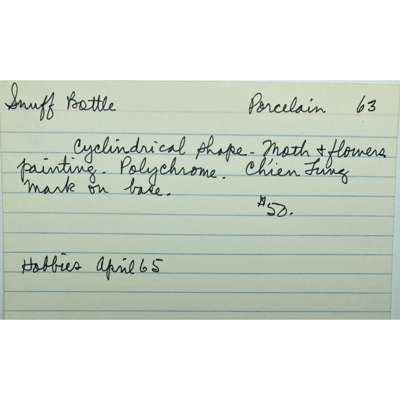 Snuff Bottle Porcelain 63
Cyclindrical shape - Moth & flowers
painting. Polychrome. Ch'ien Lung
mark on base.
$50.
Hobbies April 65